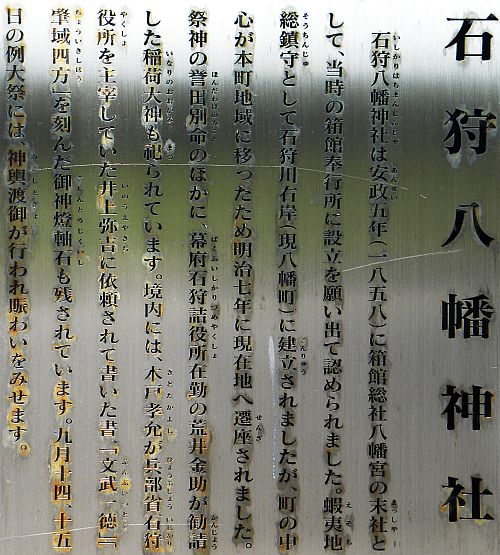 石狩八幡神社
石狩八幡神社は安政五年(一八五八)に箱館総社八幡宮の末社と
して、当時の箱館奉行所に設立を願い出て認められました。蝦夷地
総鎮守として石狩川右岸(現八幡町)に建立されましたが、町の中
心が本町地域に移ったため明治七年に現在地へ遷座されました。
祭神の誉田別命のほかに、幕府石狩詰役所在勤の荒井金助が勧請
した稲荷大神も祀られています。境内には、木戸孝允が兵部省石狩
役所を主宰していた井上弥吉に依頼されて書いた書、「文武一徳」「
肇域四方」を刻んだ御神燈軸石も残されています。九月十四、十五
日の例大祭には、神輿渡御が行われ賑わいをみせます。